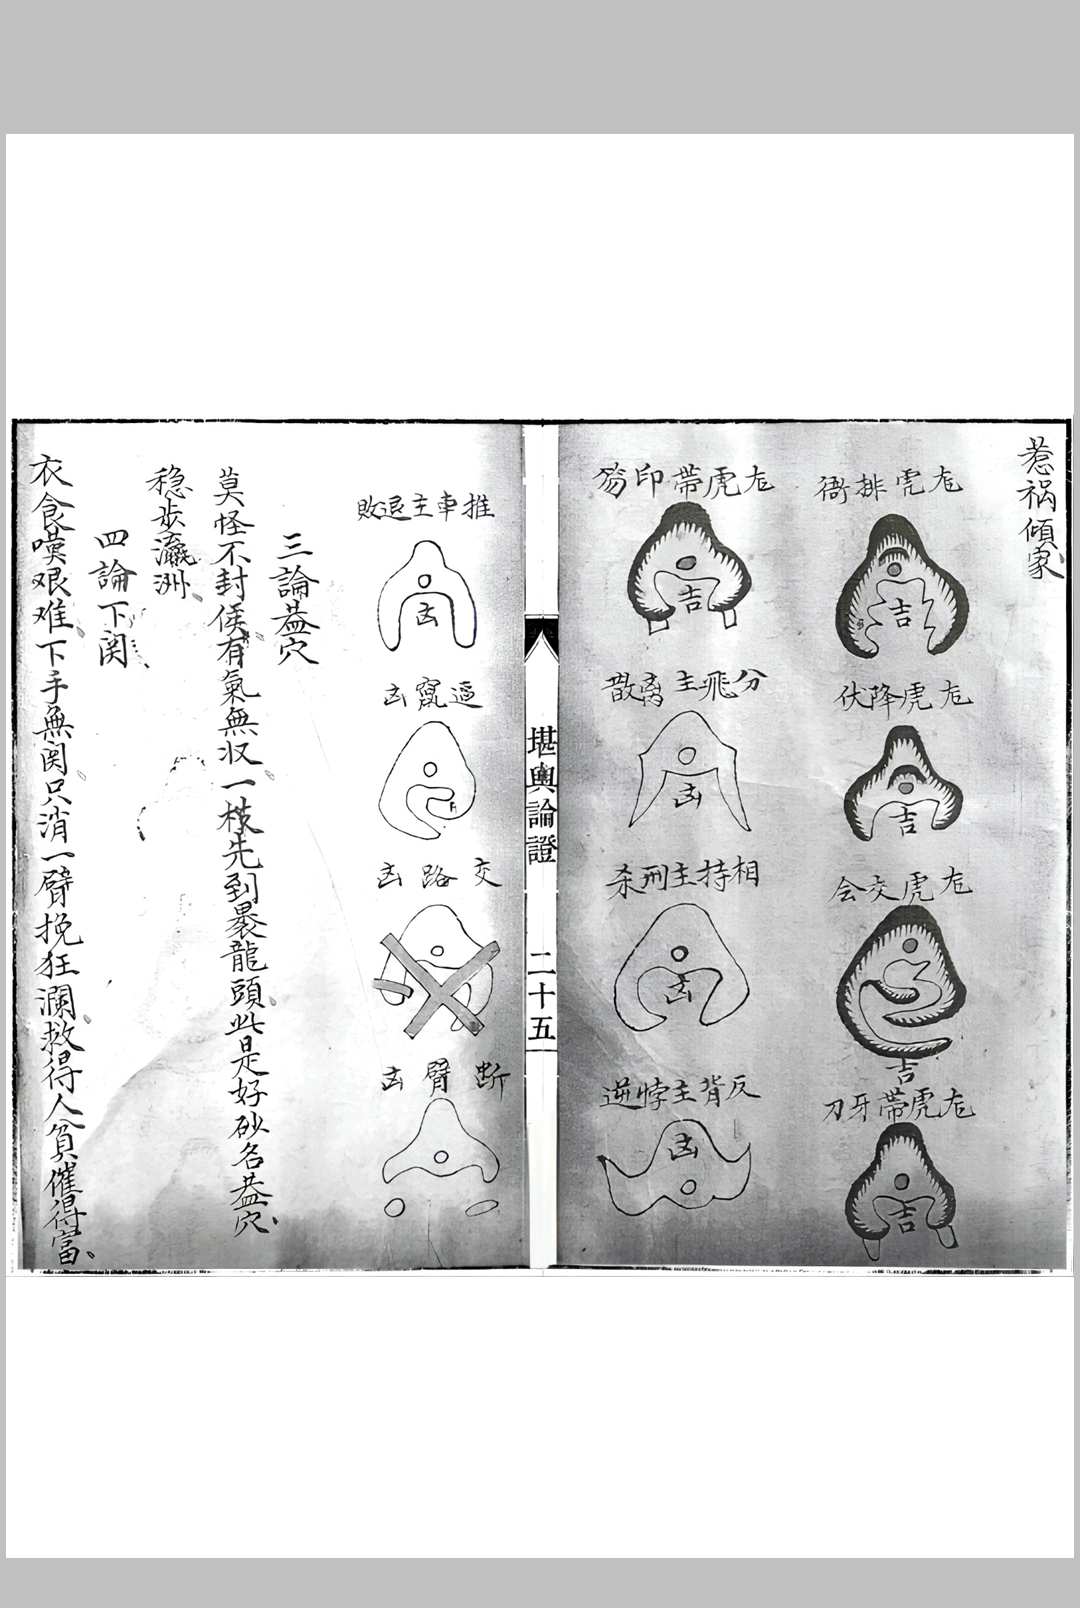 惹祸傾家
龙虎排衙
吉
龙虎降伏
吉
龙虎交会
吉
龙虎带牙刀
吉
龙虎帶印笏
吉
分飛主离散
凶
相持主刑杀
凶
反背主悖逆
凶
堪輿論證
二十五
推車主退敗
凶
逼窩凶
交路凶
断臂凶
三論葢穴
莫怪不封侯有氣無収一枝先到裹龍頭此是好砂名葢穴
稳步瀛洲
四論下関
衣食嘆艰难下手無関只消一臂挽狂瀾救得人貧催得富